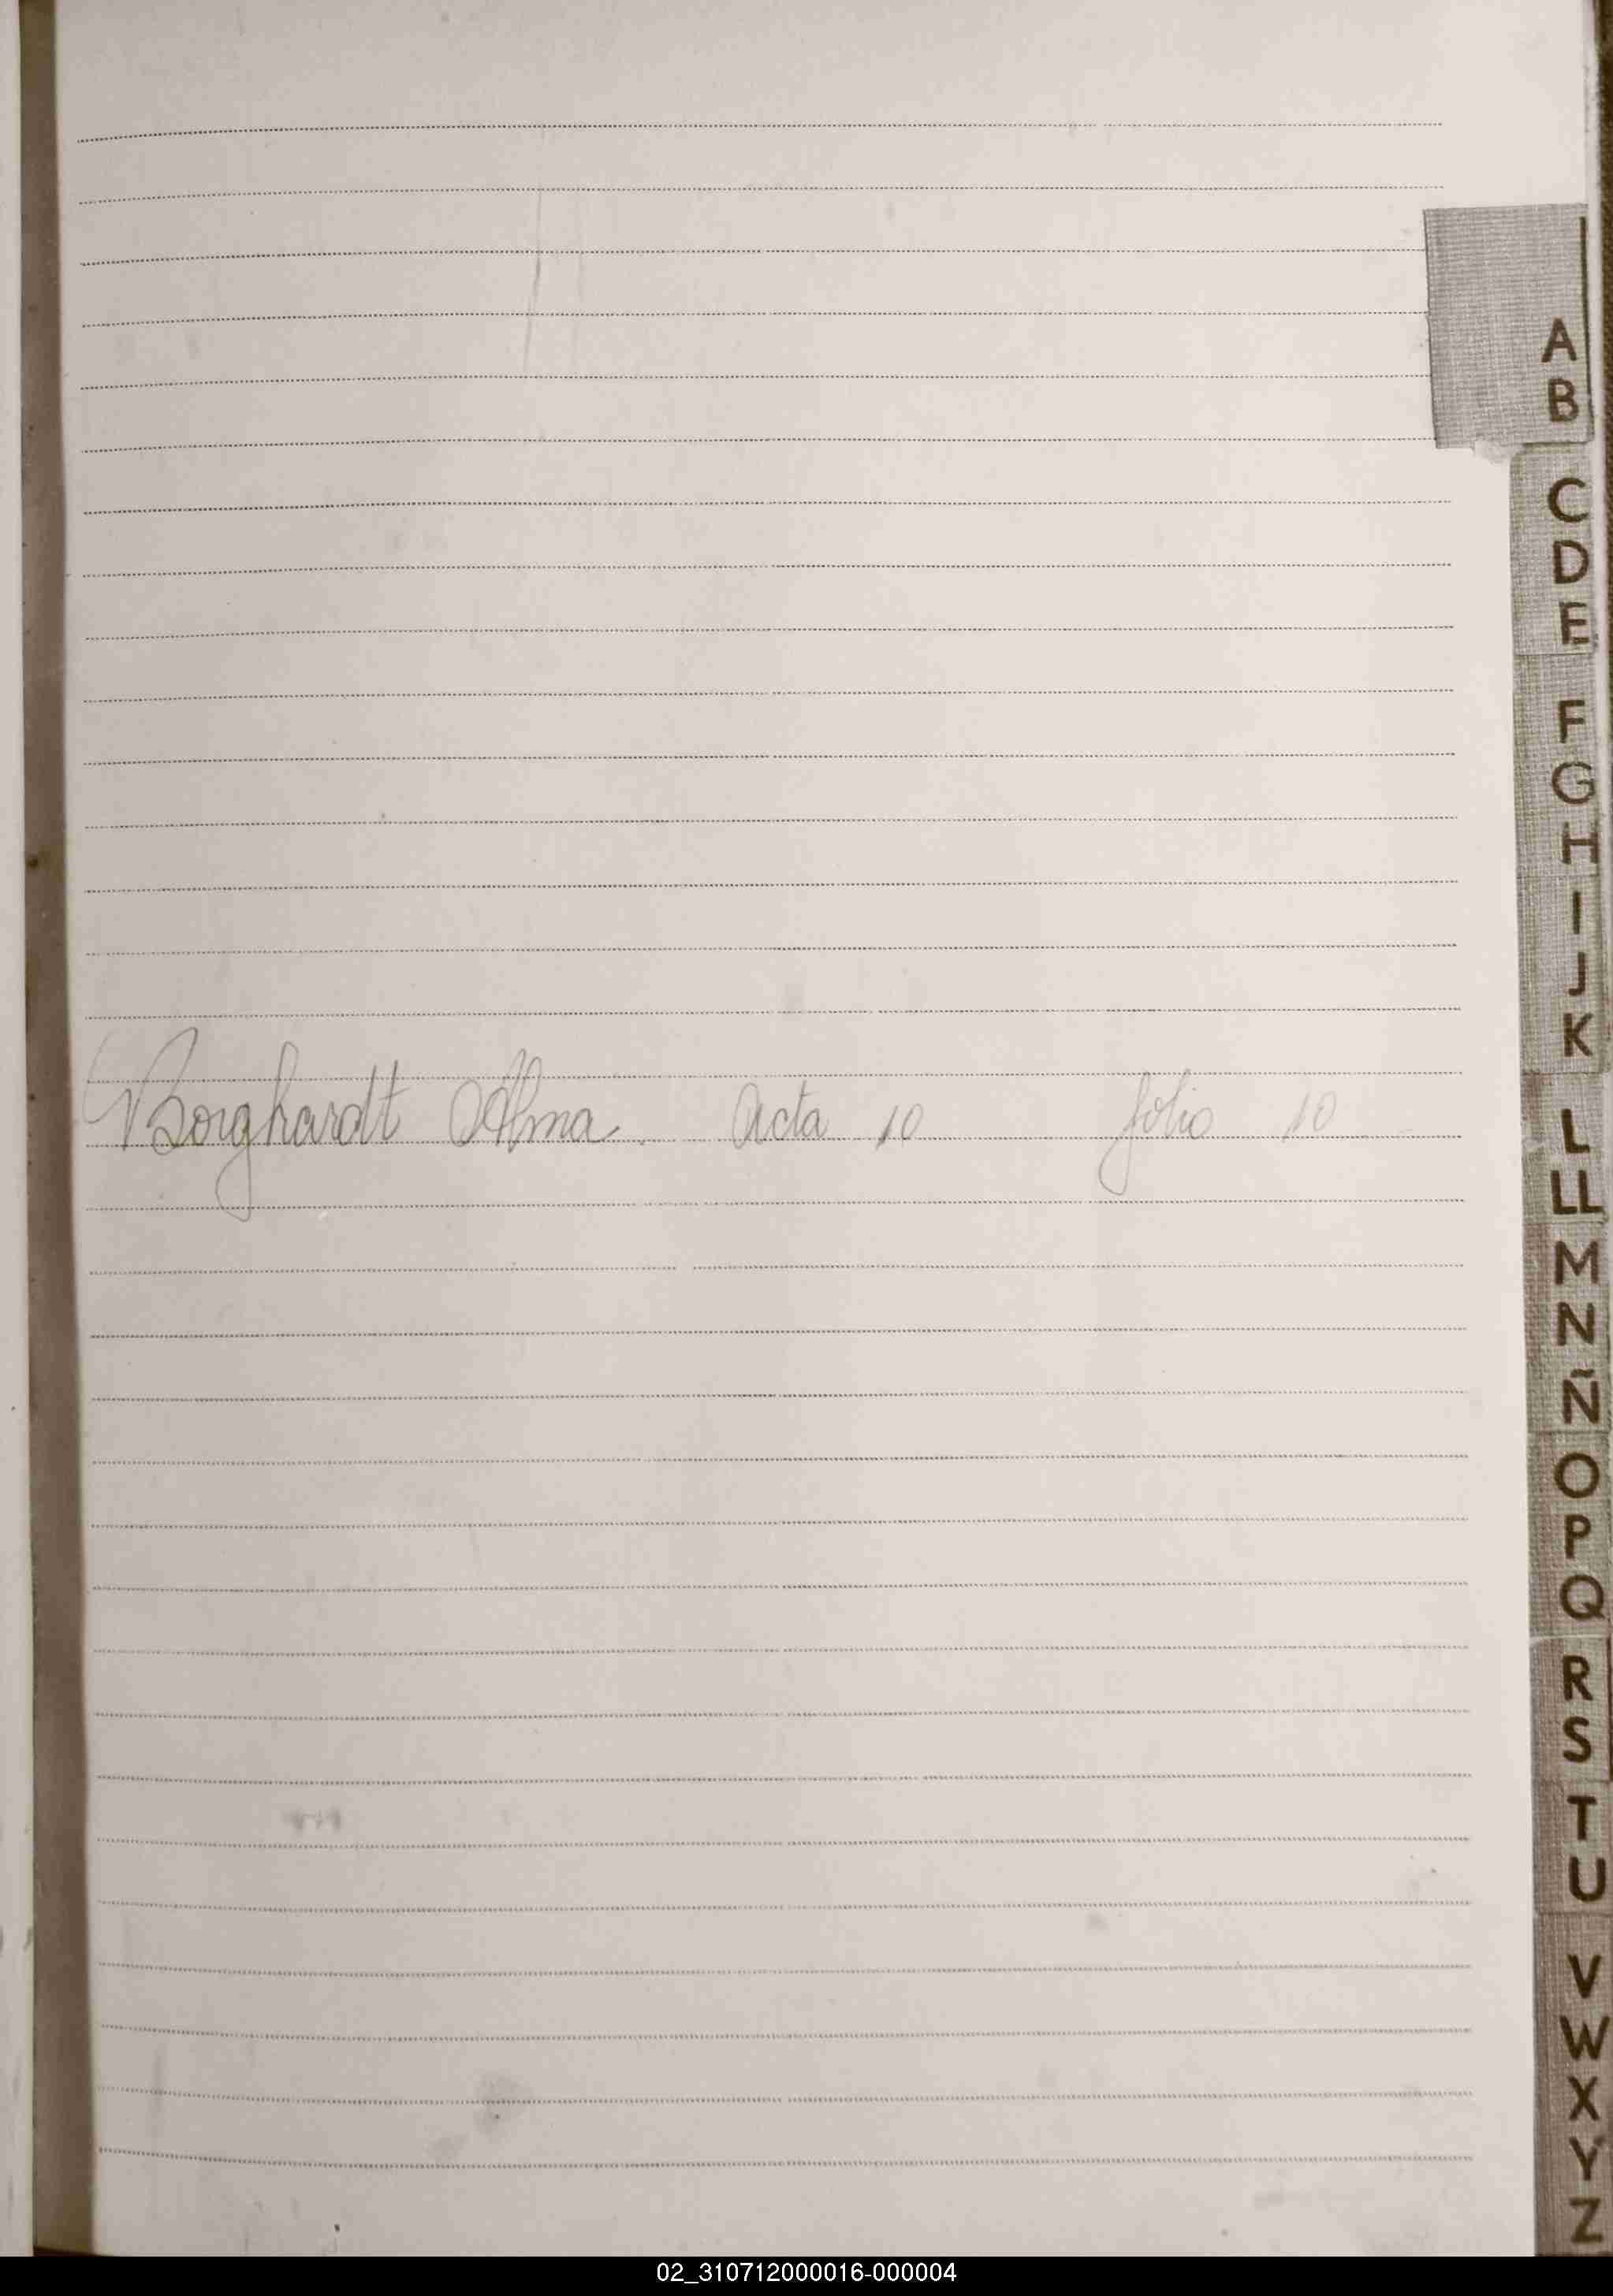 Borghardt Alma. Acta 10 folio 10
A
B
C
D
E
F
G
H
I
J
K
L
LL
M
N
Ñ
O
P
Q
R
S
T
U
V
W
X
Y
Z
02_310712000016-000004